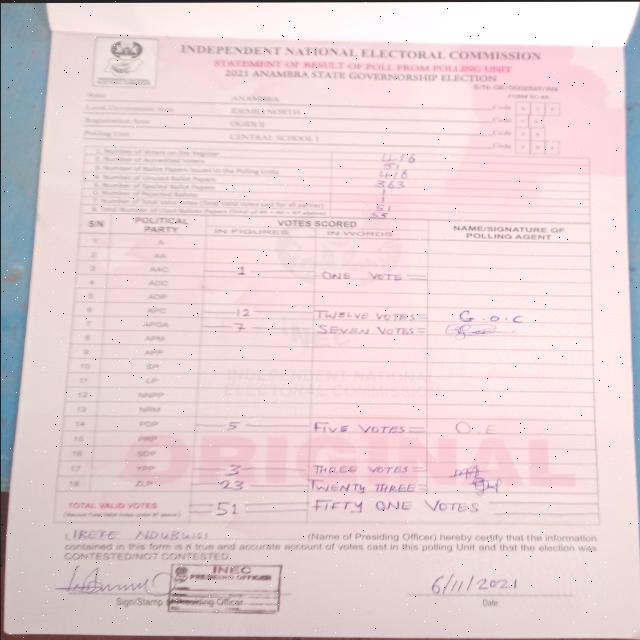 INDEPENDENT NATIONAL ELECTORAL COMMISSION
STATEMENT OF RESULT OF POLL FROM POLLING UNIT
2021 ANAMBRA STATE GOVERNORSHIP ELECTION
State ANAMBRA Code
Local Government Area IDEMILI NORTH Code
Registration Area OGIDI II Code
Polling Unit CENTRAL SCHOOL I Code
1. Number of Voters on the Register 416
2. Number of Accredited Voters 51
3. Number of Ballot Papers Issued to the Polling Unit 416
4. Number of Unused Ballot Papers 363
5. Number of Spoiled Ballot Papers
6. Number of Rejected Ballots
7. Number of Total Valid Votes (Total Valid Votes cast for all parties) 51
S/N POLITICAL PARTY VOTES SCORED NAME/SIGNATURE OF POLLING AGENT
IN FIGURES IN WORDS
1 A
2 AA
3 AAC 1 ONE VOTE
4 ADC
5 ADP
6 APC 12 TWELVE VOTES G.O.C
7 APGA 7 SEVEN VOTES
8 APM
9 APP
10 BP
11 LP
12 NNPP
13 NRM
14 PDP 5 FIVE VOTES O.E
15 PRP
16 SDP
17 YPP 3 THREE VOTES
18 ZLP 23 TWENTY THREE
ORIGINAL
TOTAL VALID VOTES 51 FIFTY ONE VOTES
I, IBEFE NDUBUISI (Name of Presiding Officer) hereby certify that the information
contained in this form is a true and accurate account of votes cast in this polling Unit and that the election was
CONTESTED/NOT CONTESTED.
INEC
PRESIDING OFFICER
6/11/2021
Sign/Stamp of Presiding Officer Date